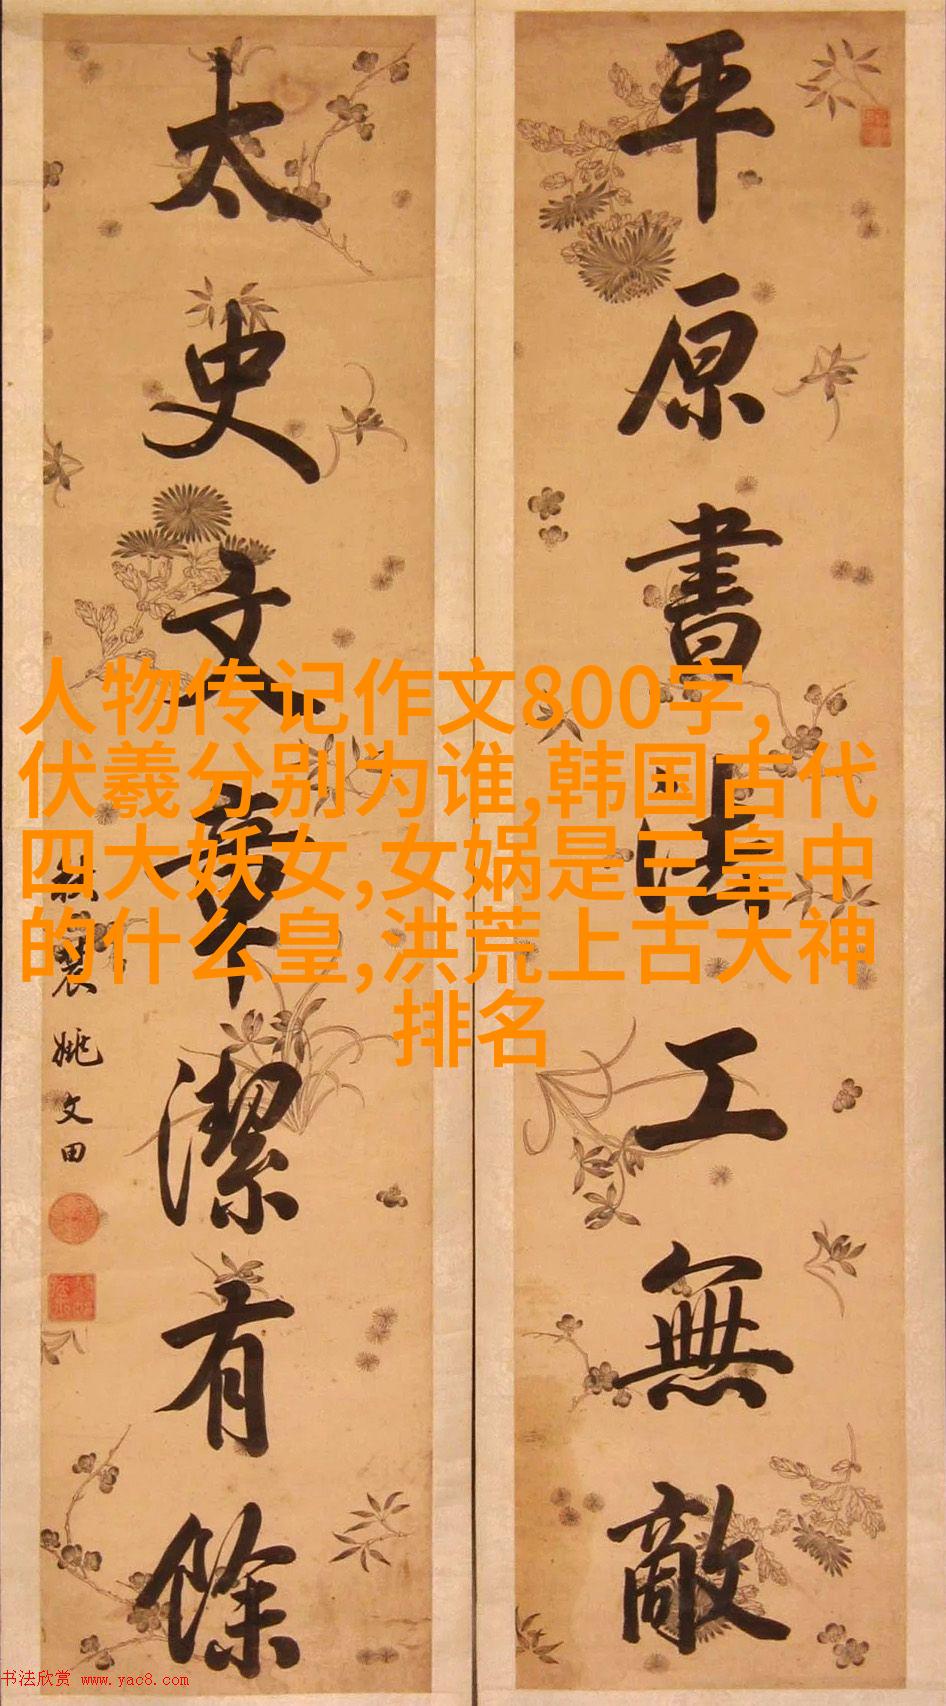 平原書法工無敵
太史文章潔有餘
姚文田
人物传记作文800字,
伏羲分别为谁,韩国古代
四大妖女,女娲是三皇中
的什么皇,洪荒上古大神
排名
书法欣赏 www.yac8.com